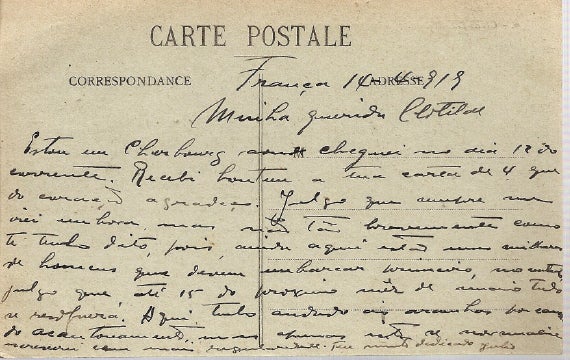 CARTE POSTALE
CORRESPONDANCE
ADRESSE
França 14-4-919
Minha querida Clotilde
Estou em Cherbourg onde cheguei no dia 12 do
corrente. Recebi hontem a tua carta de 4 que
do coração agradeço. Julgo que sempre me
irei embora mas não tão brevemente como
te tenho dito, pois, ainda aqui estão uns milhares
de homens que devem embarcar primeiro, no entanto
julgo que, até 15 do proximo mês de maio tudo
se resolverá. Aqui tudo andado aos por
do acantonamento
que muito dedicado